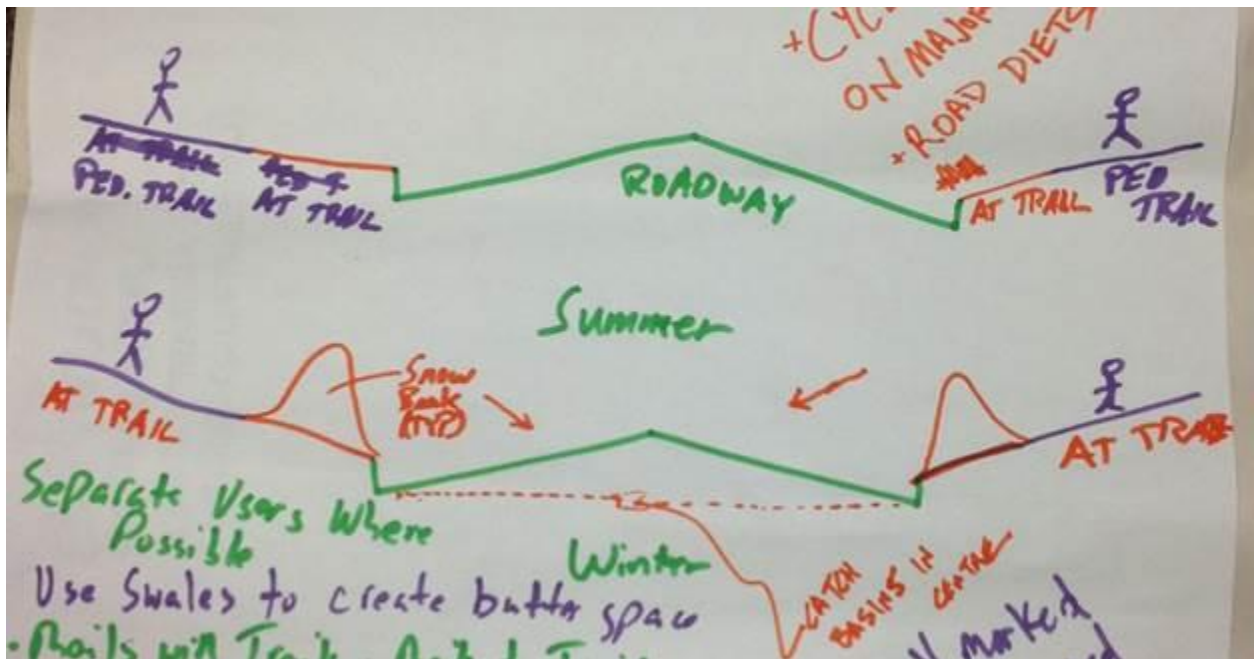 + CYC
ON MAJOR
+ ROAD DIETS
PED. TRAIL
AT TRAIL
ROADWAY
AT TRAIL
PED
TRAIL
Summer
AT TRAIL
Snow
Bank
(TYP)
AT TRAIL
Separate Users Where
Possible
Winter
CATCH
BASINS IN
CENTRE
Use Swales to create buffer space
marked